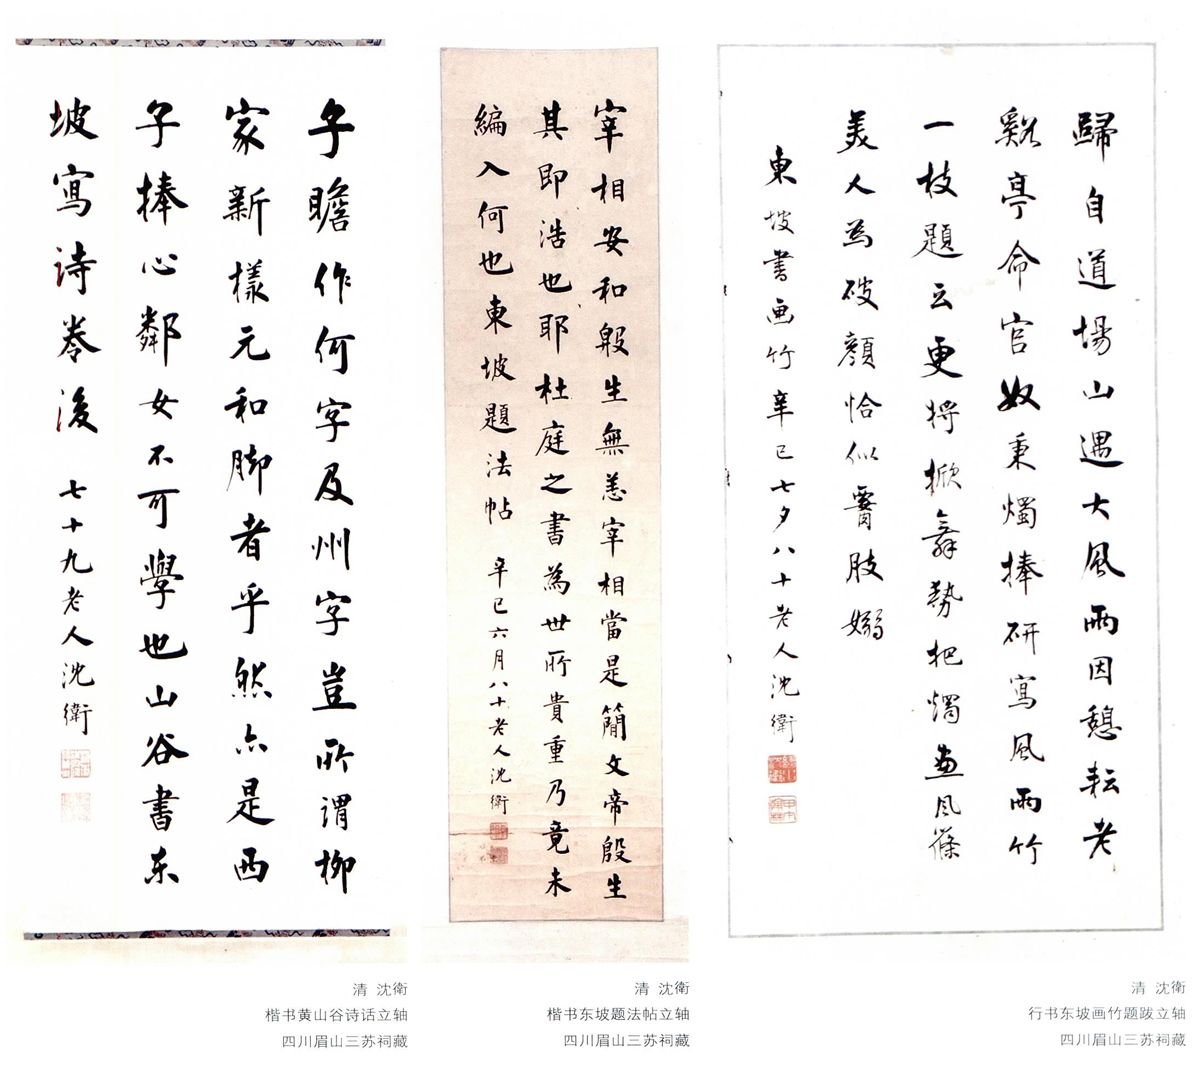 歸自道場山遇大風雨因憩耘老
谿亭命官奴秉燭捧研寫風雨竹
一枝題云更將掀舞勢把燭畫風篠
美人為破顏恰似腰肢嫋
東坡書画竹辛巳七夕八十老人沈衛
宰相安和殷生無恙宰相當是簡文帝殷生
其即浩也耶杜庭之書為世所貴重乃竟未
編入何也東坡題法帖
辛巳六月八十老人沈衛
子瞻作何字及州字豈所謂柳
家新樣元和脚者乎然亦是西
子捧心鄰女不可學也山谷書东
坡寫詩卷後
七十九老人沈衛
清 沈衛
楷书黄山谷诗话立轴
四川眉山三苏祠藏
清 沈衛
楷书东坡题法帖立轴
四川眉山三苏祠藏
清 沈衛
行书东坡画竹题跋立轴
四川眉山三苏祠藏